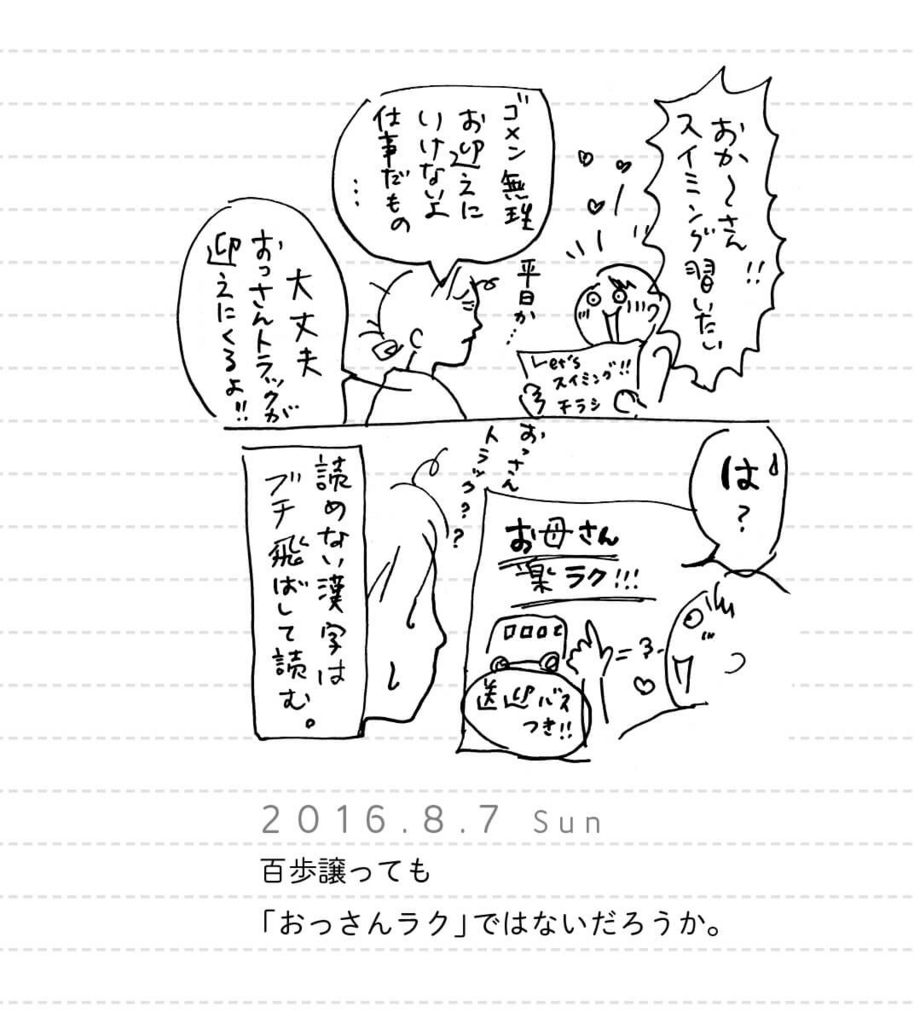 おか〜さん!!
スイミング習いたい
ゴメン無理
お迎えに
いけないよ
仕事だもの
…
平日か…
Let's
スイミング!!
チラシ
大丈夫
おっさんトラックが
迎えにくるよ!!
は?
おっさん
トラック??
お母さん
楽ラク!!!
送迎バス
つき!!
読めない漢字は
ブチ飛ばして読む。
2016.8.7 Sun
百歩譲っても
「おっさんラク」ではないだろうか。